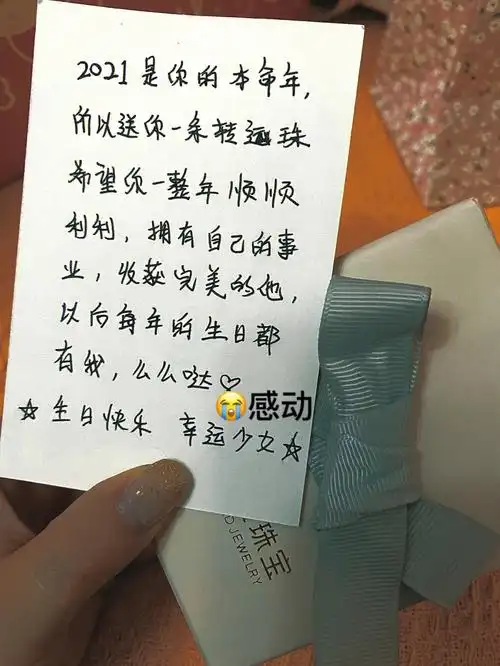 2021是你的本命年,
所以送你一条转运珠
希望你一整年顺顺
利利，拥有自己的事
业，收获完美的他，
以后每年的生日都
有我，么么哒♡
😭感动
☆生日快乐 幸运少女☆
珠宝
JEWELRY